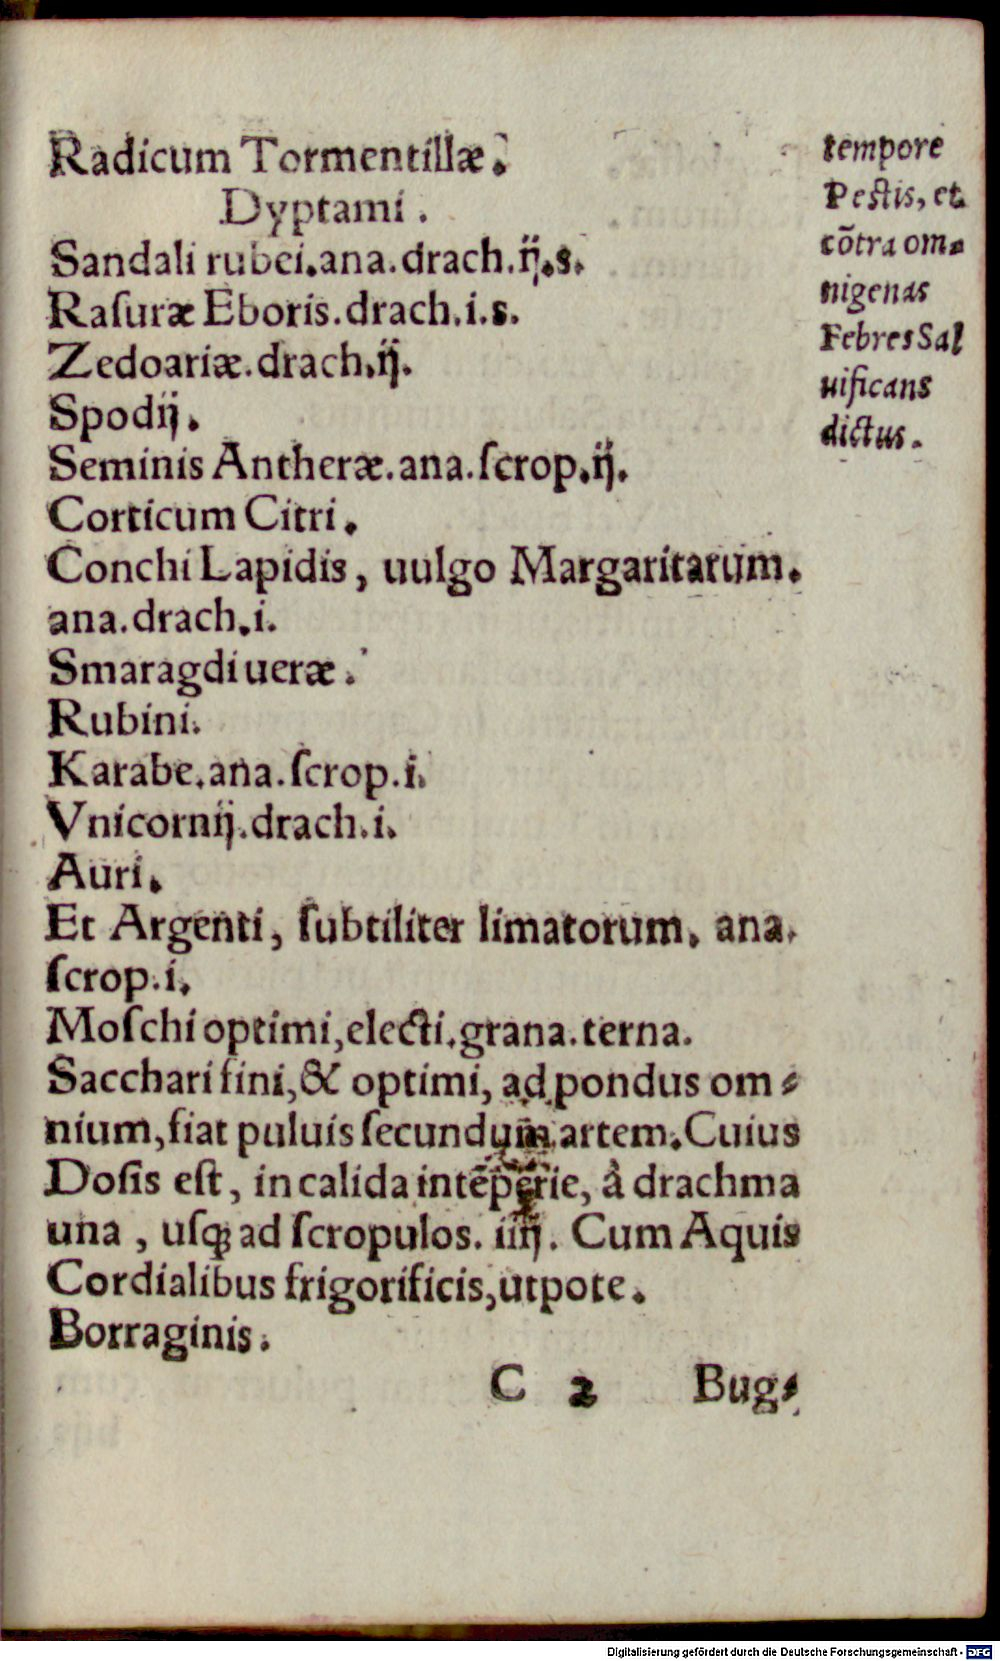 Radicum Tormentillæ.
Dyptami.
Sandali rubei.ana.drach.ij.s.
Raſuræ Eboris.drach.i.s.
Zedoariæ.drach.ij.
Spodij.
Seminis Antheræ.ana.ſcrop.ij.
Corticum Citri.
Conchi Lapidis, uulgo Margaritarum.
ana.drach.i.
Smaragdi ueræ.
Rubini.
Karabe.ana.ſcrop.i.
Vnicornij.drach.i.
Auri.
Et Argenti, ſubtiliter limatorum. ana.
ſcrop.i.
Moſchi optimi,electi.grana.terna.
Sacchari fini,& optimi, ad pondus om⸗
nium,fiat puluis ſecundum artem.Cuius
Doſis eſt, in calida intēperie, à drachma
una, uſq; ad ſcropulos. iiij. Cum Aquis
Cordialibus frigorificis,utpote.
Borraginis.
C 2 Bug⸗
tempore
Peſtis, et
cōtra om⸗
nigenas
Febres Sal
uificans
dictus.
Digitalisierung gefördert durch die Deutsche Forschungsgemeinschaft - DFG